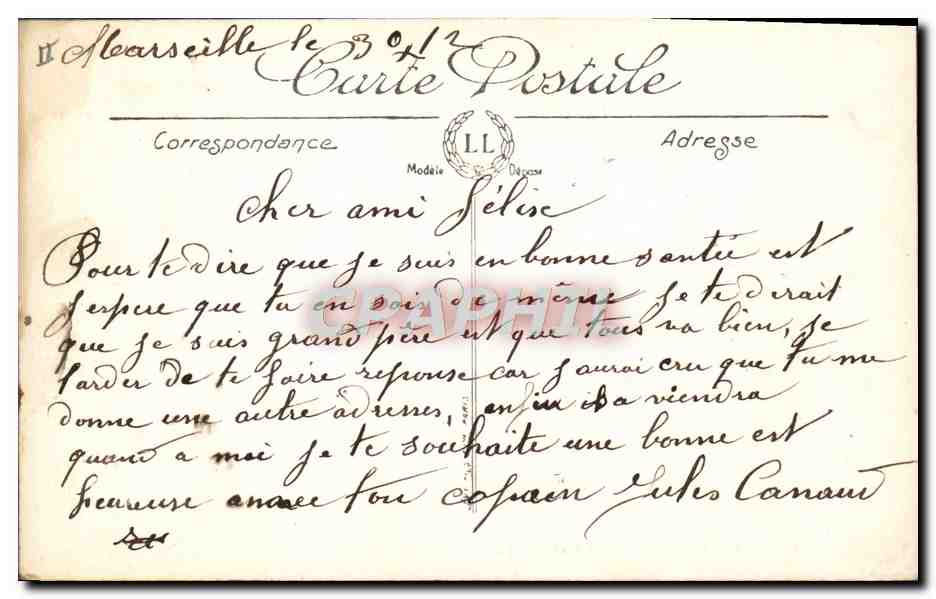 Marseille le 30 12
Carte Postale
Correspondance
Adresse
LL
Modèle Déposé
Cher ami Félix
Pour te dire que je suis en bonne santée est
j'espere que tu en sois de même je te dirait
que je suis grand père est que tous va bien, je
tarder de te faire reponse car j'aurai cru que tu me
donne une autre adresses, enfin sa viendra
quand a moi je te souhaite une bonne est
heureuse année ton copain Jules Canaud
CPAPHIL